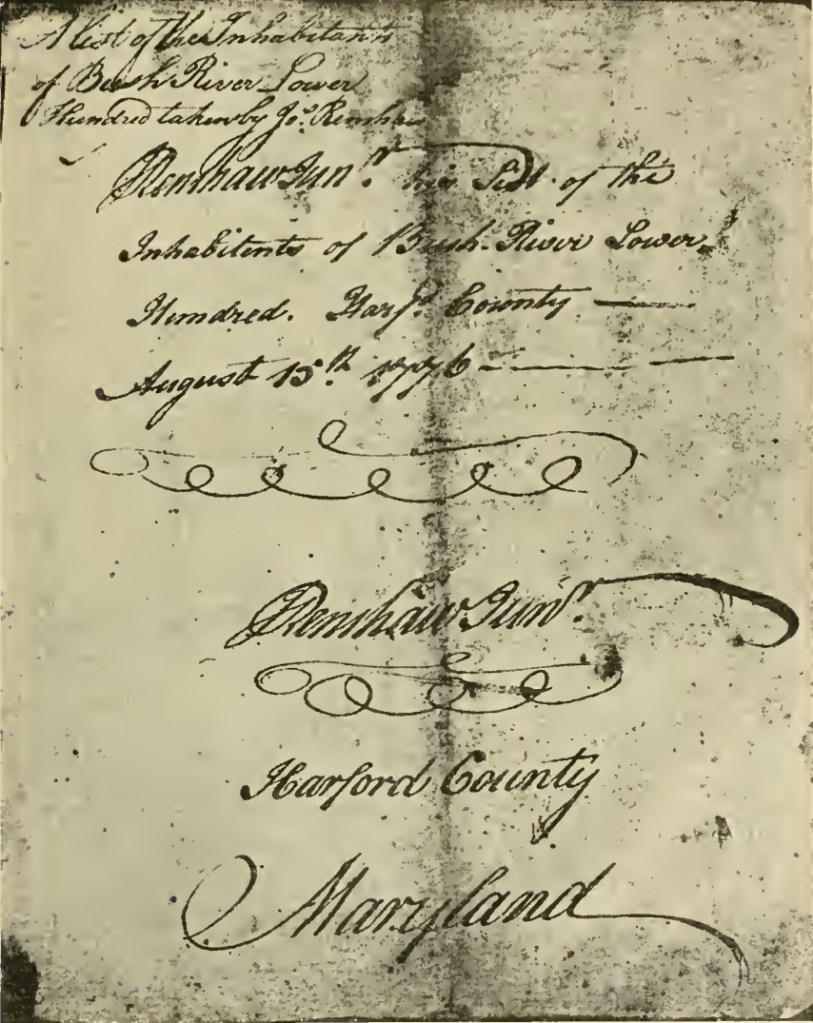 A list of the Inhabitants
of Bush River Lower
Hundred taken by Jos. Renshaw
Renshaw Junr. his List of the
Inhabitents of Bush River Lower
Hundred. Harfd. County
August 15th. 1776
Renshaw Junr.
Harford County
Maryland